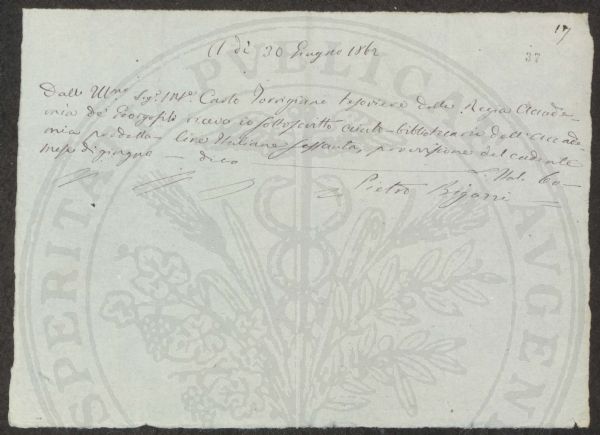 17
37
A dì 30 Giugno 1862
Dall' Ill.mo Sig.r March.e Carlo Torrigiani tesoriere della Regia Accade-
mia de' Georgofili ricevo io sottoscritto bibliotecario dell' Accade-
mia predetta Lire Italiane sessanta, provvisione del cadente
mese di giugno — dico — Ital. 60 —
Pietro Bigazzi
PROSPERITATI PUBLICAE AUGENDAE